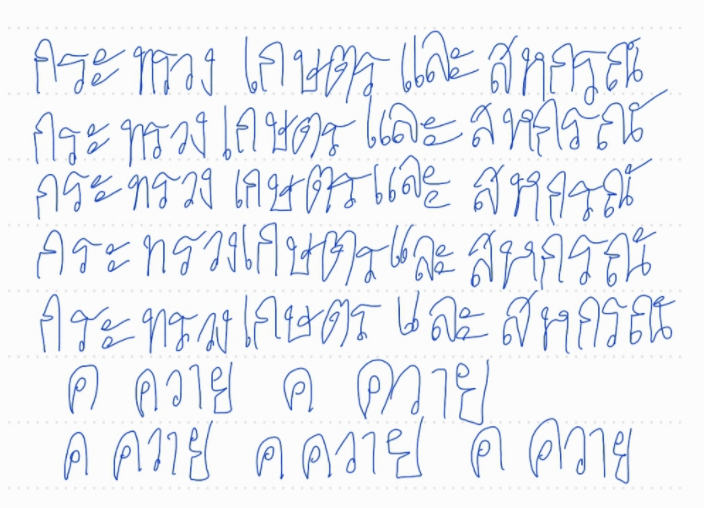 กระทรวง เกษตร และ สหกรณ์
กระทรวง เกษตร และ สหกรณ์
กระทรวง เกษตร และ สหกรณ์
กระทรวง เกษตร และ สหกรณ์
กระทรวง เกษตร และ สหกรณ์
ค ควาย ค ควาย
ค ควาย ค ควาย ค ควาย